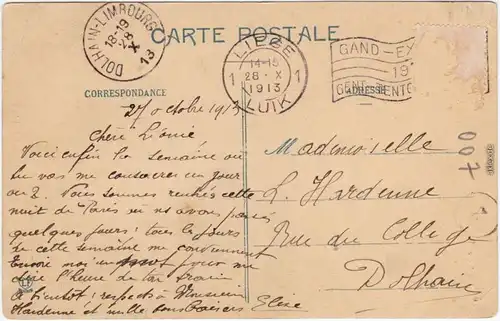 CARTE POSTALE
DOLHAIN-LIMBOURG
18-19
28
X
13
LIEGE
1 14-15 1
28 · X
1913
LUIK
GAND-EX
19
GENT-TENTO
CORRESPONDANCE
ADRESSE
27 octobre 1913
Chère Léonie
Voici enfin la semaine où
tu vas me consacrer un jour
ou 2. Nous sommes rentrés cette
nuit de Paris où ns avons passé
quelques jours; tous les jours
de cette semaine me conviennent
Envoie moi un mot pour me
dire l'heure de ton train
A bientôt; respects à Monsieur
Hardenne et mille bons baisers
Mademoiselle
L. Hardenne
Rue du Collège
Dolhain
700